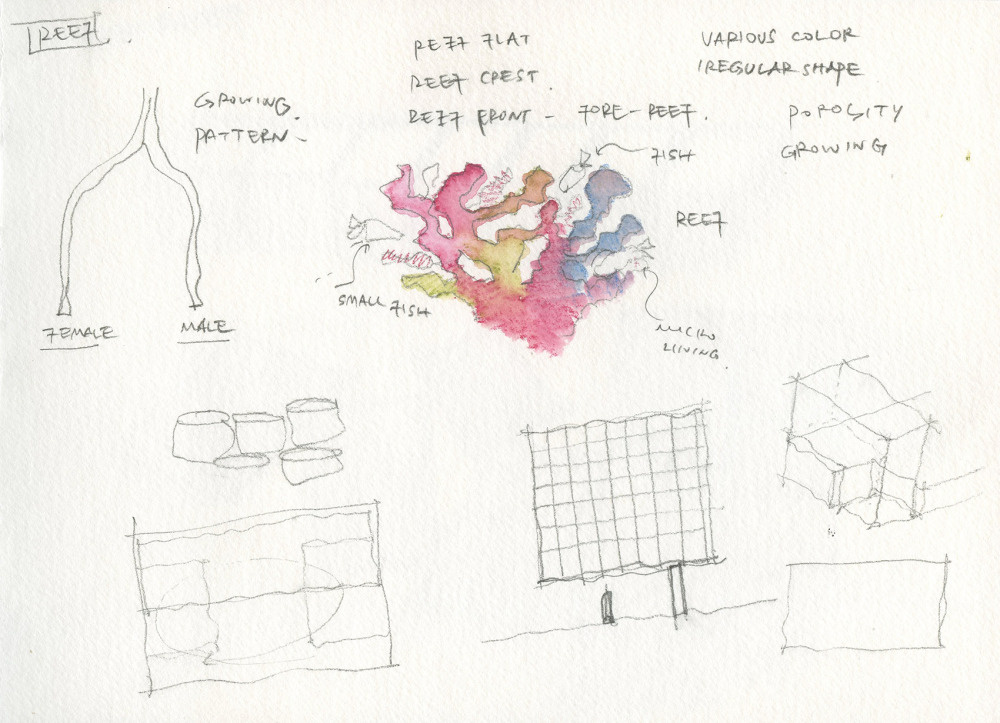 REEF
GROWING
PATTERN
FEMALE
MALE
REEF FLAT
REEF CREST
REEF FRONT - FORE-REEF.
VARIOUS COLOR
IREGULAR SHAPE
POROSITY
GROWING
FISH
REEF
SMALL FISH
MICRO
LIVING